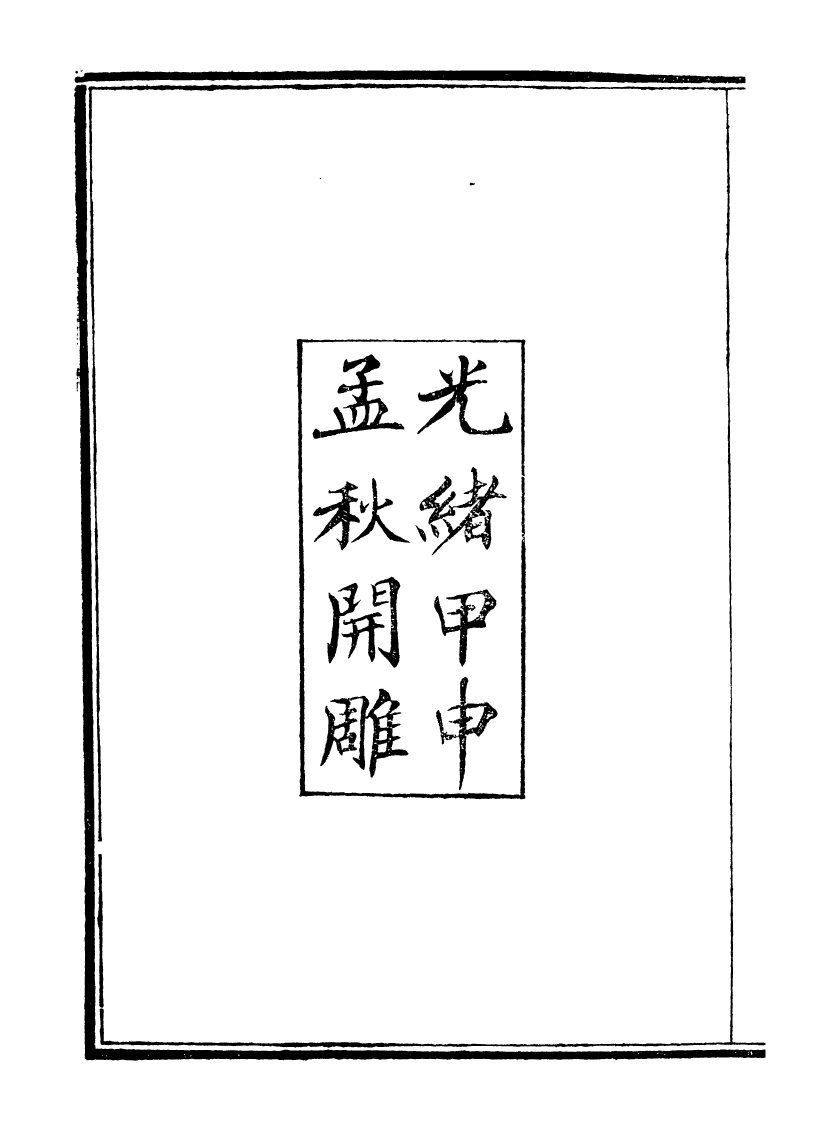 光緒甲申
孟秋開雕